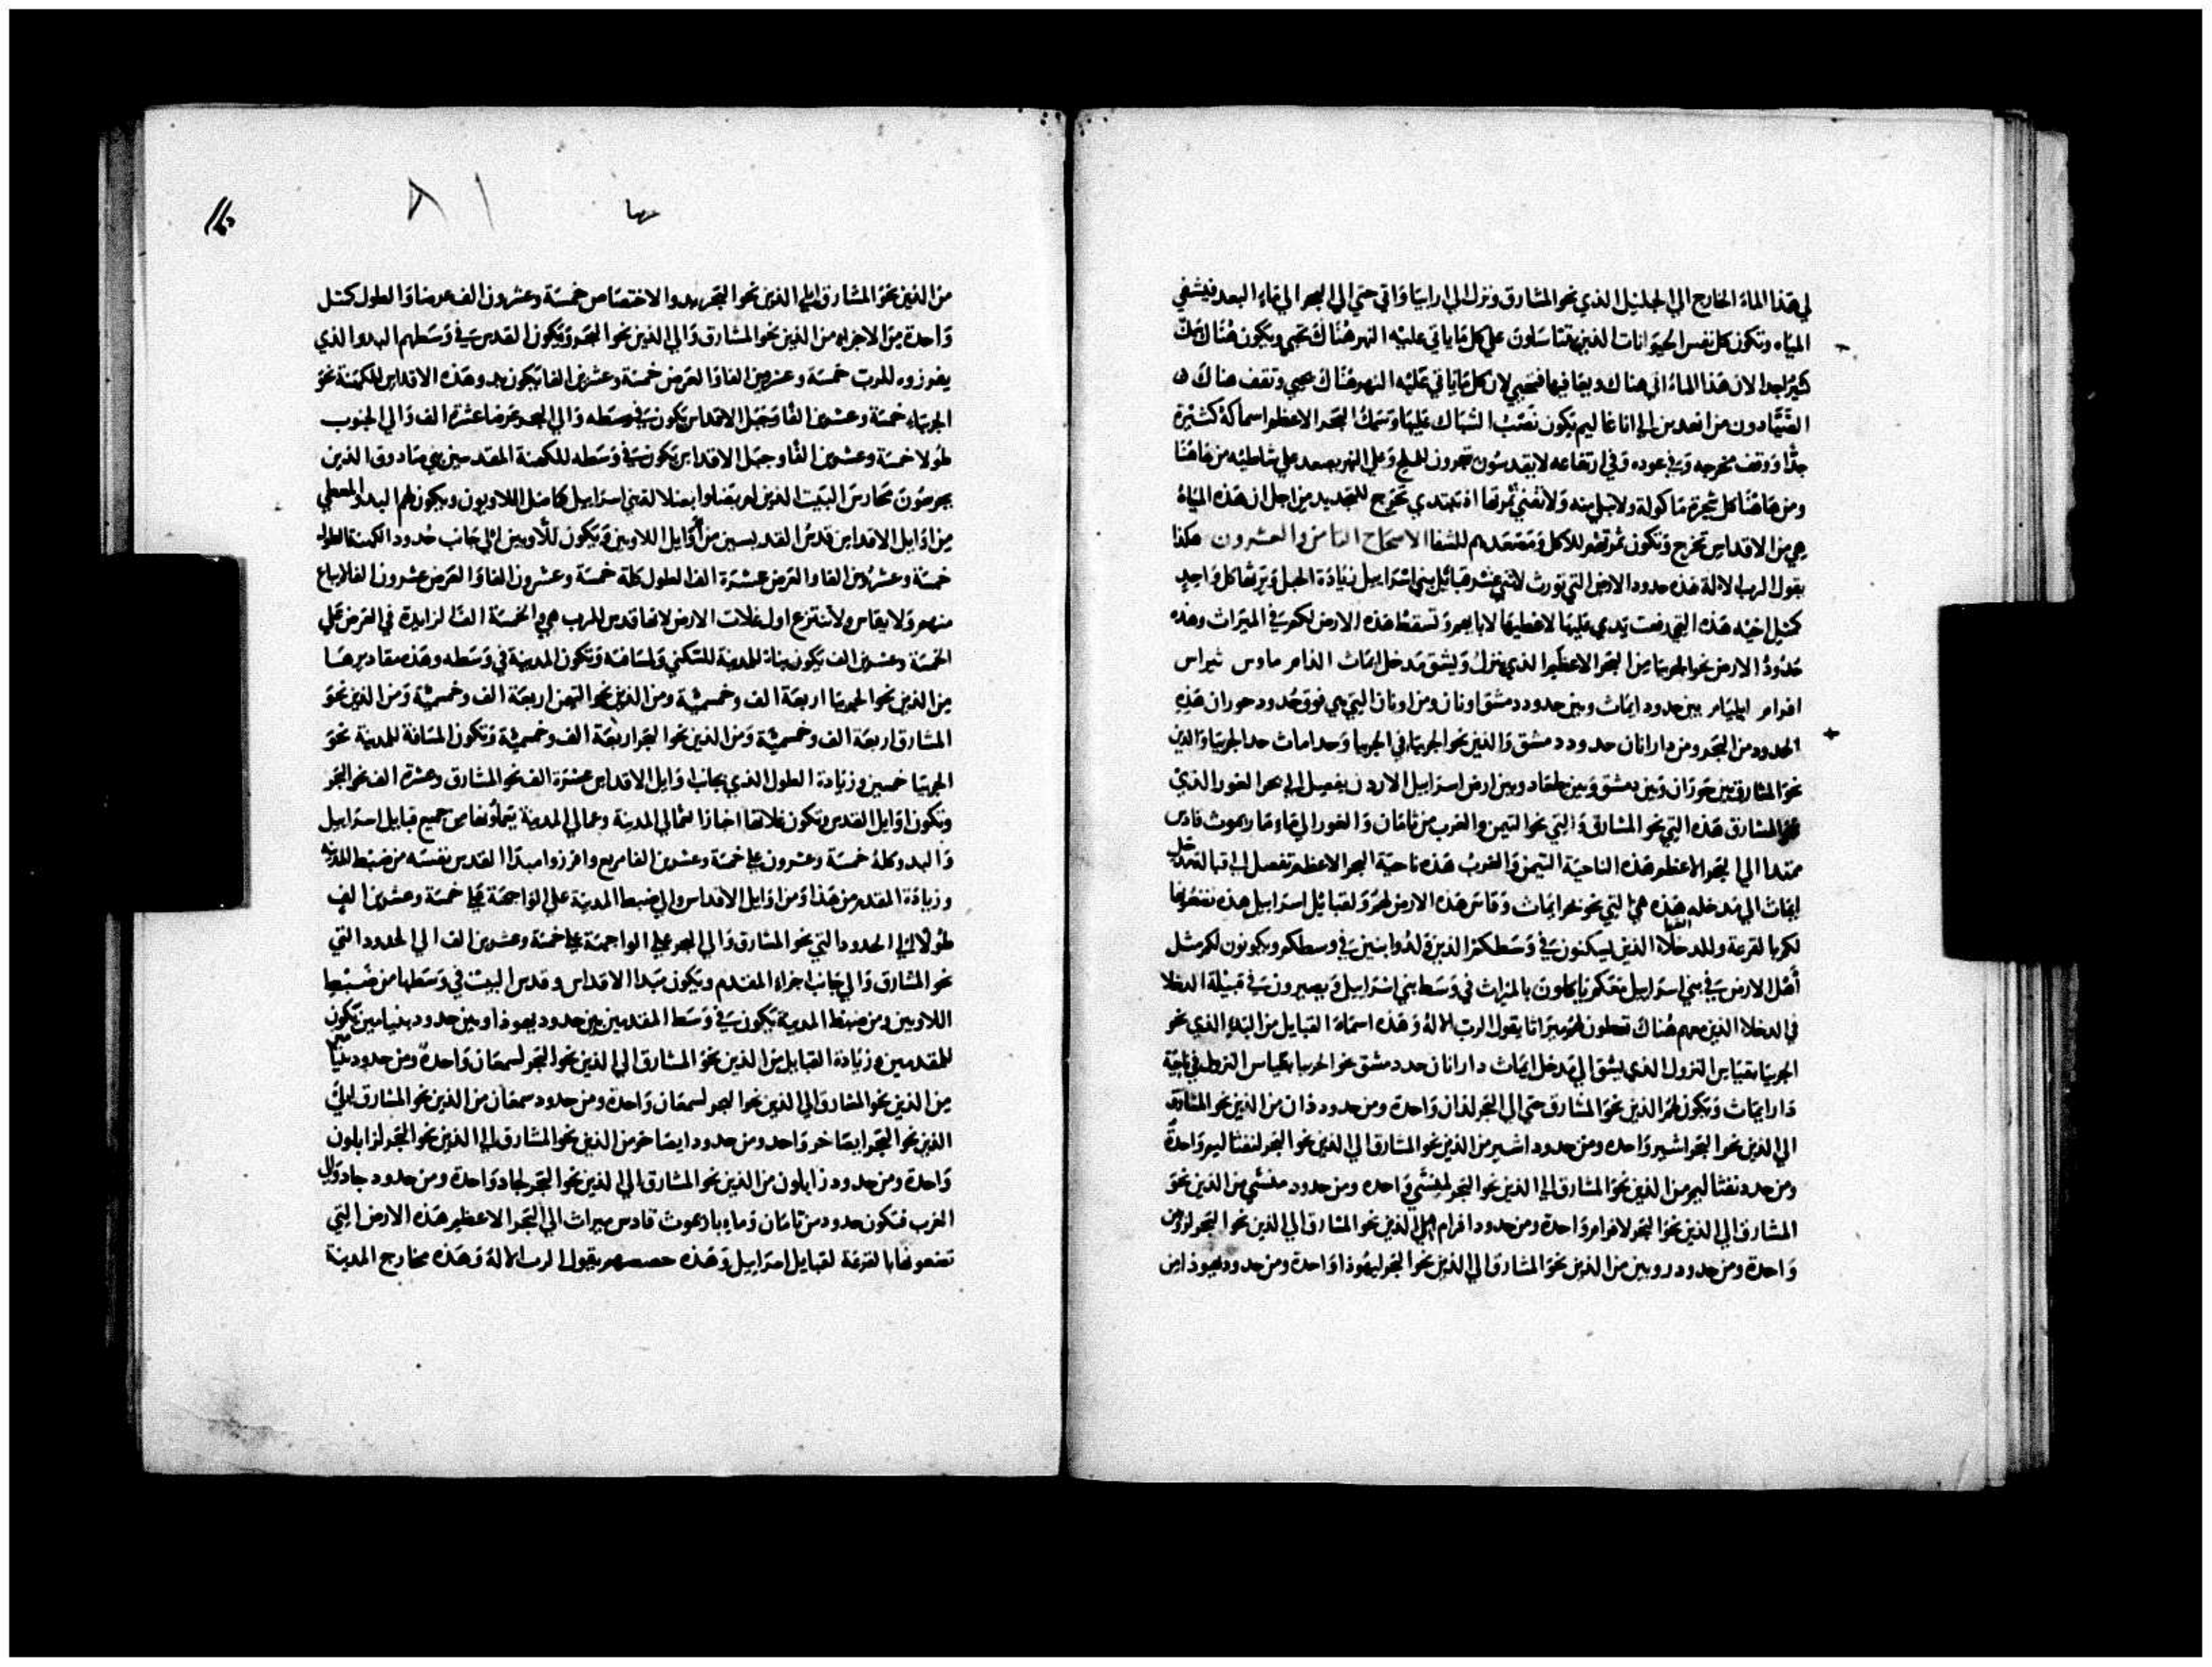 لي هذا الماء الخارج الي الجليل الذي نحو المشارق ونزل الي ارابيا واتي حتي الي البحر الي ماء البعد فيشفي
المياه وتكون كل نفس الحيوانات الذين علي كل ما ياتي عليه النهر هناك تحيي ويكون هناك سمك
كثير جدا لان هذا الماء اتي هناك ويعافيها فتحيي لان كل ما ياتي عليه النهر هناك يحيي وتقف هناك
الصيادون من الي اناغاليم تكون نصب الشباك عليها وسمك البحر الاعظم اسماكه كثيرة
جدا ووقف مخرجه وفي عوده وفي ارتفاعه لا يقدسون للملح وعلي النهر يصعد علي شاطيه من هاهنا
ومن هاهنا كل شجرة ماكوله ولا تبلي منه ولا تفني ثمرتها تخرج من اجل ان هذه المياه
هي من الاقداس تخرج وتكون ثمرتهم للاكل ومصعدهم للشفا الاصحاح الثامن والعشرون هكذا
يقول الرب الاله هذه حدود الارض التي تورث لاثني عشر قبائل بني اسراييل زيادة الحبل وترثها كل واحد
كمثل اخيه هذه التي رفعت يدي عليها لاعطيها لابايهم وتسقط هذه الارض لكم في الميراث وهذه
حدود الارض نحو الجربيا من البحر الاعظم الذي ينزل ويشق مدخل ايماث الدامر ماوس ثبراس
افرام ايليام بين حدود ايماث وبين حدود دمشق اونان ومن اونان التي هي فوق حدود حوران هذه
الحدود من البحر ومن دارانان حدود دمشق والذين نحو الجربيا في الجربيا وحد اماث حد الجربيا والذين
نحو المشارق بين حوران وبين دمشق وبين جلعاد وبين ارض اسراييل الاردن يفصل الي بحر الغور الذي
نحو المشارق هذه التي نحو المشارق والتي نحو التيمن والغرب من ثامان والغور الي ماء ماريموث قادس
ممتدا الي البحر الاعظم هذه الناحية التيمن والغرب هذه ناحية البحر الاعظم تفصل الي قبالة مدخل
ايماث الي مدخله هذه هي التي نحو بحر ايماث وقاس هذه الارض لهم ولقبائل اسراييل هذه تضعونها
لكم بالقرعة وللدخلا الذين يسكنون في وسطكم الذين ولدوا بنين في وسطكم ويكونون لكم مثل
اهل الارض في بني اسراييل معكم ياكلون بالميراث في وسط بني اسراييل ويصيرون في قبيلة الدخلا
في الدخلا الذين معهم هناك تعطون لهم ميراثا يقول الرب الاله وهذه اسماء القبايل من البدء الذي نحو
الجربيا بقياس النزول الذي يشق الي مدخل ايماث دارانان حد دمشق نحو الجربيا بقياس النزول في ناحية
دار ايماث وتكون لهم الذين نحو المشارق حتي الي البحر لدان واحدة ومن حدود دان من الذين نحو المشارق
الي الذين نحو البحر اشير واحده ومن حدود اشير من الذين نحو المشارق الي الذين نحو البحر لنفثاليم واحدة
ومن حدود نفثاليم من الذين نحو المشارق الي الذين نحو البحر لمنشي واحده ومن حدود منشي من الذين نحو
المشارق الي الذين نحو البحر لافرام واحدة ومن حدود افرام الذين نحو المشارق الي الذين نحو البحر لروبين
واحدة ومن حدود روبين من الذين نحو المشارق الي الذين نحو البحر ليهوذا واحدة ومن حدود يهوذا من
من الذين نحو المشارق الي الذين نحو البحر يبدو الاختصاص خمسة وعشرون الف عرضا والطول كمثل
واحدة من الاجزاء من الذين نحو المشارق والي الذين نحو البحر ويكون القدس في وسطهم البدو الذي
يفرزوه للرب خمسة وعشرين الفا والعرض خمسة وعشرين الفا يكون بدو هذه الاقداس للكهنة نحو
الجربياء خمسة وعشرين الفا وجبل الاقداس يكون في وسطه والي البحر عرضا عشرة الف والي الجنوب
طولا خمسة وعشرين الفا وجبل الاقداس يكون في وسطه للكهنة المقدسين بني صادوق الذين
يحرصون محارس البيت الذين لم يضلوا بضلالة بني اسراييل كما ضل اللاويون ويكون لهم البدا المعطي
من اوايل الاقداس قدس القديسين من اوايل اللاويين ويكون للاويين الي جانب حدود الكهنة الطول
خمسة وعشرون الفا والعرض عشرة الف الطول كله خمسة وعشرون الفا والعرض عشرون الفا لا يباع
منهم ولا يقاس ولا تنتزع اول غلات الارض لانها قدس للرب هي والخمسة الف الزايدة في العرض علي
الخمسة وعشرين الف يكون بناء للمدينة للسكني ولمسافته وتكون المدينة في وسطه وهذه مقاديرها
من الذين نحو الجربيا اربعة الف وخمسمية ومن الذين نحو التيمن اربعة الف وخمسمية ومن الذين نحو
المشارق اربعة الف وخمسمية ومن الذين نحو البحر اربعة الف وخمسمية وتكون المسافة للمدينة نحو
الجربيا خمسين وزيادة الطول الذي بجانب اوايل الاقداس عشرة الف نحو المشارق وعشرة الف نحو البحر
وتكون اوايل القدس وتكون غلاتها اخبازا لعمالي المدينة وعمالي المدينة من جميع قبايل اسراييل
والبدو كله خمسة وعشرون علي خمسة وعشرين الفا مربع وافرزوا مبدا القدس نفسه من ضبط المدينة
وزيادة المقدم من هذا ومن اوايل الاقداس والي ضبط المدينة علي الواجهة علي خمسة وعشرين الف
طولا الي الحدود التي نحو المشارق والي البحر علي الواجهة علي خمسة وعشرين الف الي الحدود التي
نحو المشارق والي جانب اجزاء المقدم ويكون مبدا الاقداس وقدس البيت في وسطها من ضبط
اللاويين ومن ضبط المدينة يكون في وسط المقدمين بين حدود يهوذا وبين حدود بنيامين يكون
للمقدمين وزيادة القبايل من الذين نحو المشارق الي الذين نحو البحر لسمعان واحدة ومن حدود بنيامين
من الذين نحو المشارق الي الذين نحو البحر لسمعان واحدة ومن حدود سمعان من الذين نحو المشارق الي
الذين نحو البحر ايصاخر واحد ومن حدود ايصاخر من الذين نحو المشارق الي الذين نحو البحر لزابلون
واحدة ومن حدود زابلون من الذين نحو المشارق الي الذين نحو البحر لجاد واحدة ومن حدود جاد والي
الغرب فتكون حدود من ثامان وماء باريموث قادس ميراث الي البحر الاعظم هذه الارض التي
تضعونها بالقرعة لقبايل اسراييل وهذه حصصهم يقول الرب الاله وهذه مخارج المدينة